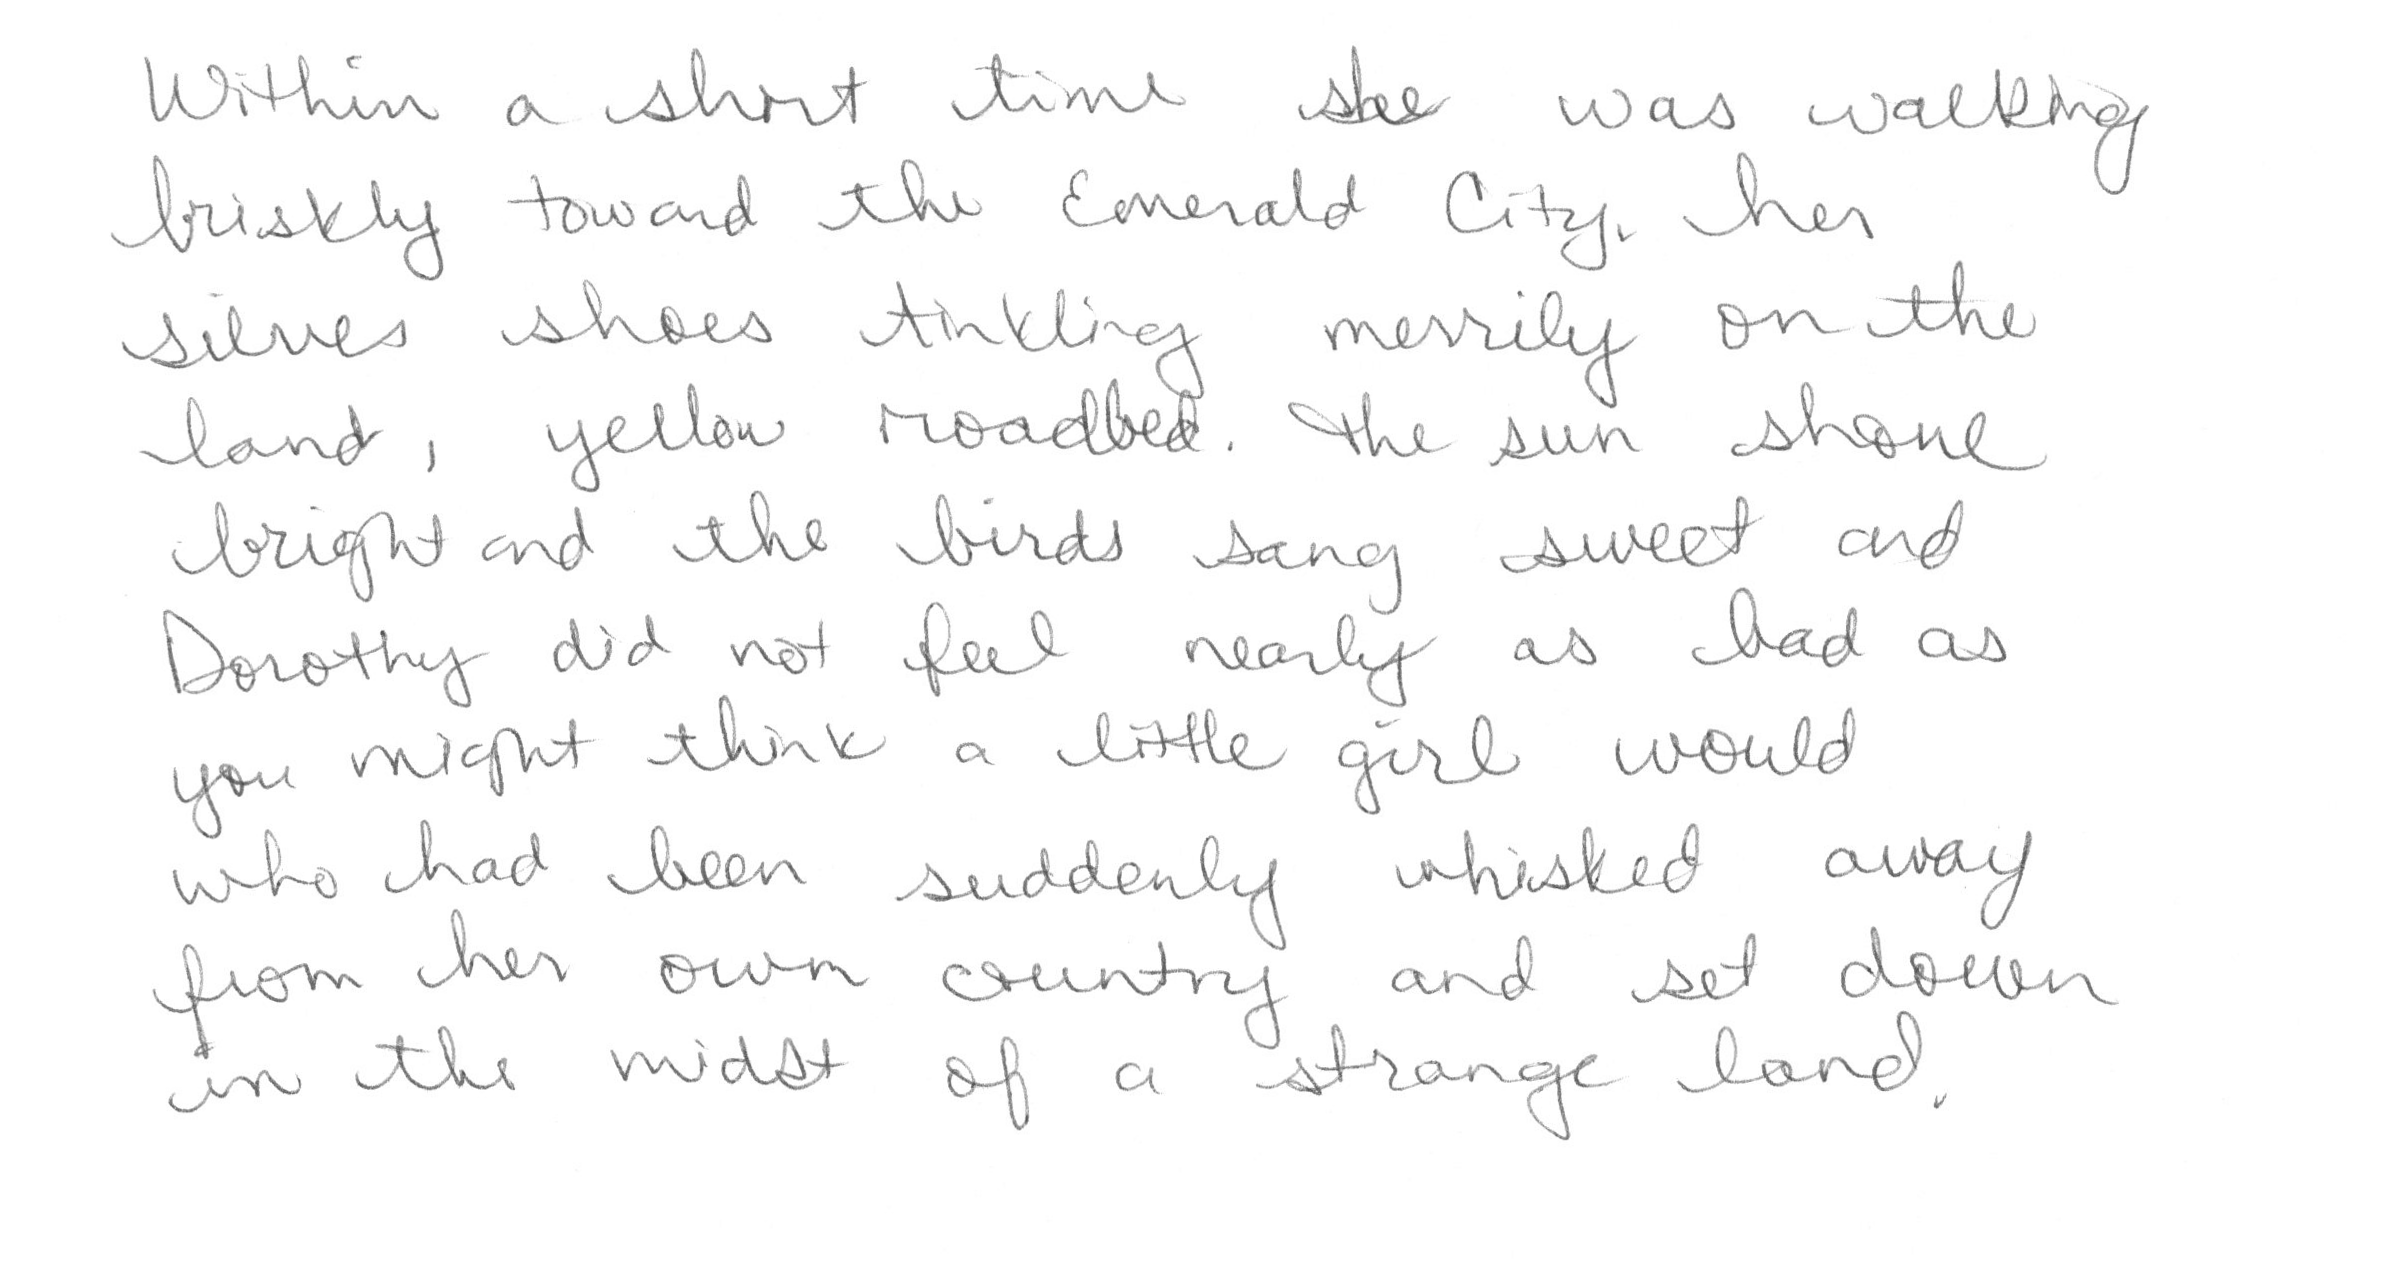 Within a short time she was walking
briskly toward the Emerald City, her
silves shoes tinkling merrily on the
land, yellow roadbed. The sun shone
bright and the birds sang sweet and
Dorothy did not feel nearly as bad as
you might think a little girl would
who had been suddenly whisked away
from her own country and set down
in the midst of a strange land.